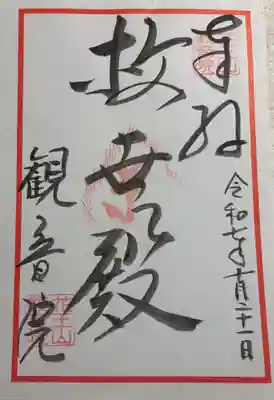 奉拝
令和七年十月二十一日
救世殿
観音院